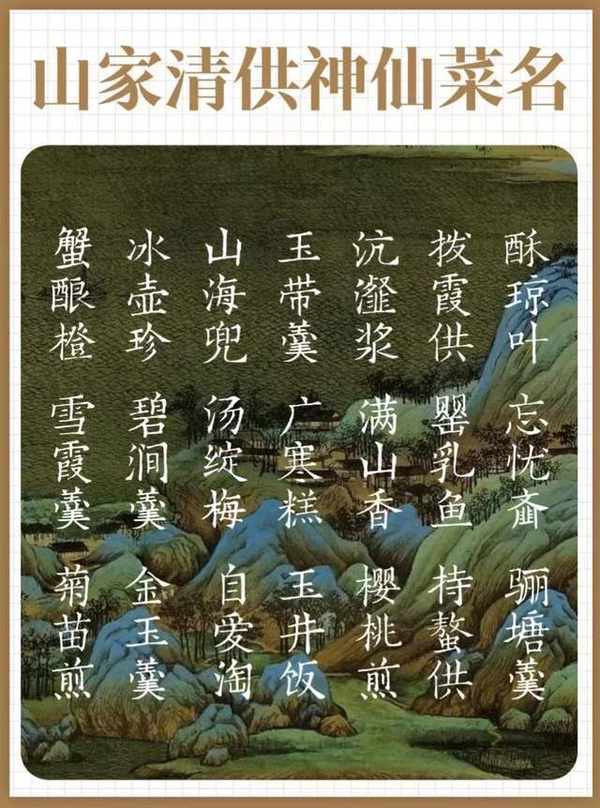 山家清供神仙菜名
酥琼叶
拨霞供
沆瀣浆
玉带羹
山海兜
冰壶珍
蟹酿橙
忘忧齑
罂乳鱼
满山香
广寒糕
汤绽梅
碧涧羹
雪霞羹
骊塘羹
持螯供
樱桃煎
玉井饭
自爱淘
金玉羹
菊苗煎